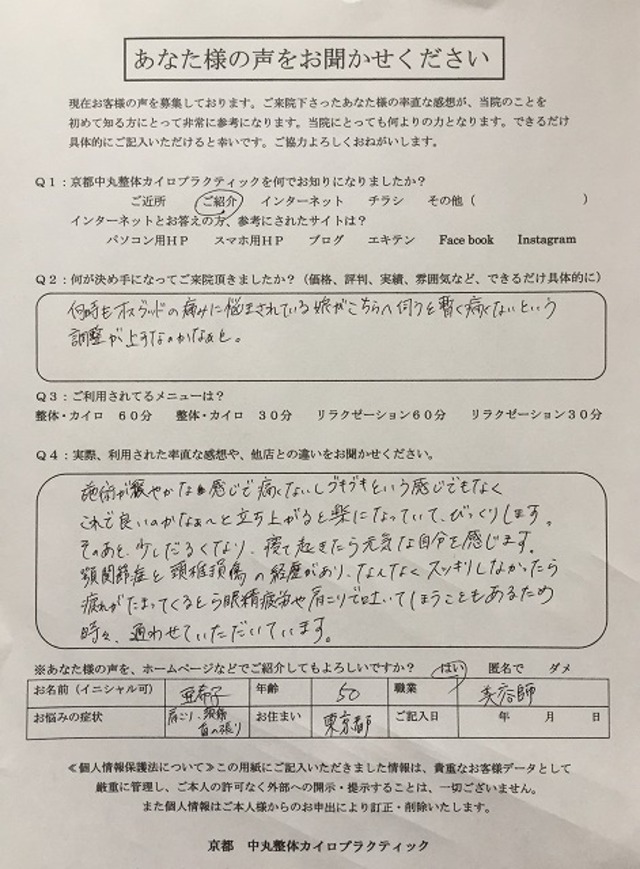 あなた様の声をお聞かせください
現在お客様の声を募集しております。ご来院下さったあなた様の率直な感想が、当院のことを
初めて知る方にとって非常に参考になります。当院にとっても何よりの力となります。できるだけ
具体的にご記入いただけると幸いです。ご協力よろしくおねがいします。
Q1：京都中丸整体カイロプラクティックを何でお知りになりましたか？
ご近所 ご紹介 インターネット チラシ その他（ ）
インターネットとお答えの方、参考にされたサイトは？
パソコン用HP スマホ用HP ブログ エキテン Face book Instagram
Q2：何が決め手になってご来院頂きましたか？（価格、評判、実績、雰囲気など、できるだけ具体的に）
何時もオスグッドの痛みに悩まされている娘がこちらへ伺うと暫く痛くないという
調整が上手なのかなぁと。
Q3：ご利用されてるメニューは？
整体・カイロ 60分 整体・カイロ 30分 リラクゼーション60分 リラクゼーション30分
Q4：実際、利用された率直な感想や、他店との違いをお聞かせください。
施術が緩やかな感じで痛くないしブキブキという感じでもなく
これで良いのかなぁ〜と立ち上がると楽になっていて、びっくりします。
そのあと、少しだるくなり、寝て起きたら元気な自分を感じます。
顎関節症と頸椎損傷の経歴があり、なんなくスッキリしなかったら
疲れがたまってくるとら眼精疲労や肩こりで吐いてしまうこともあるため
時々、通わせていただいています。
※あなた様の声を、ホームページなどでご紹介してもよろしいですか？ はい 匿名で ダメ
お名前（イニシャル可） 亜希子 年齢 50 職業 美容師
お悩みの症状 肩こり、頭痛 首の張り お住まい 東京都 ご記入日 年 月 日
≪個人情報保護法について≫この用紙にご記入いただきました情報は、貴重なお客様データとして
厳重に管理し、ご本人の許可なく外部への開示・提示することは、一切ございません。
また個人情報はご本人様からのお申出により訂正・削除いたします。
京都 中丸整体カイロプラクティック